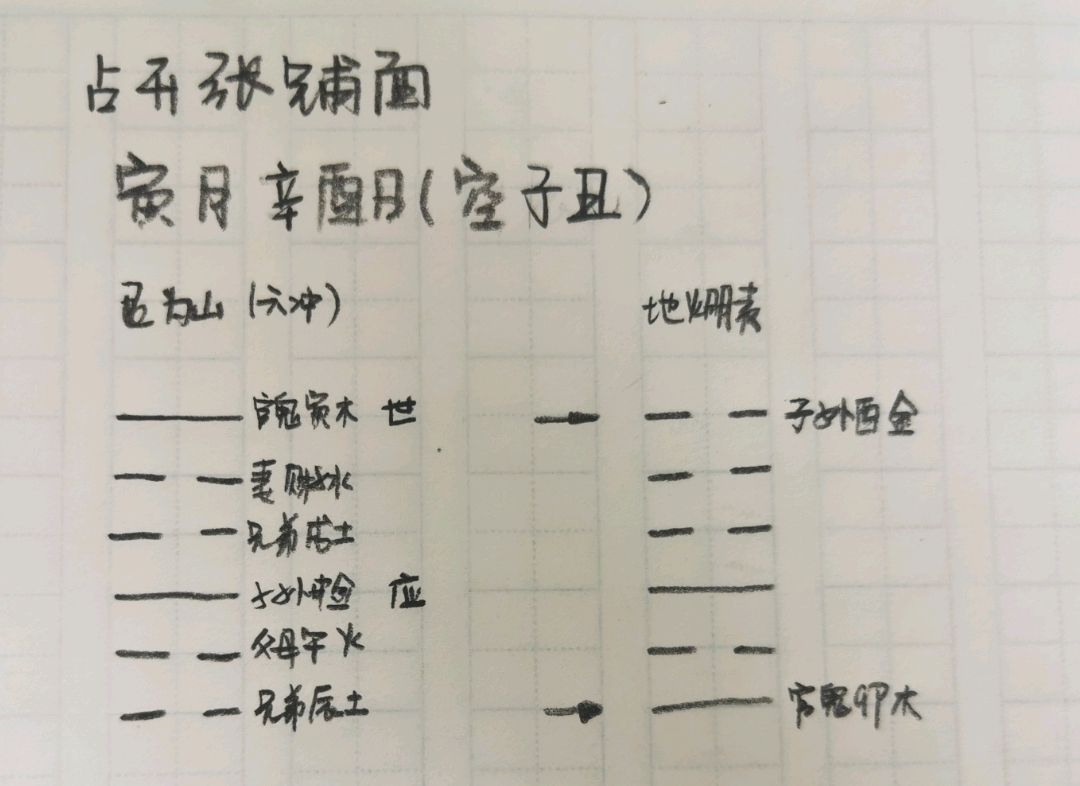 占开张铺面
寅月 辛酉日(空子丑)
艮为山 (六冲) 地火明夷
官鬼寅木 世 子孙酉金
妻财子水
兄弟戌土
子孙申金 应
父母午火
兄弟辰土 官鬼卯木